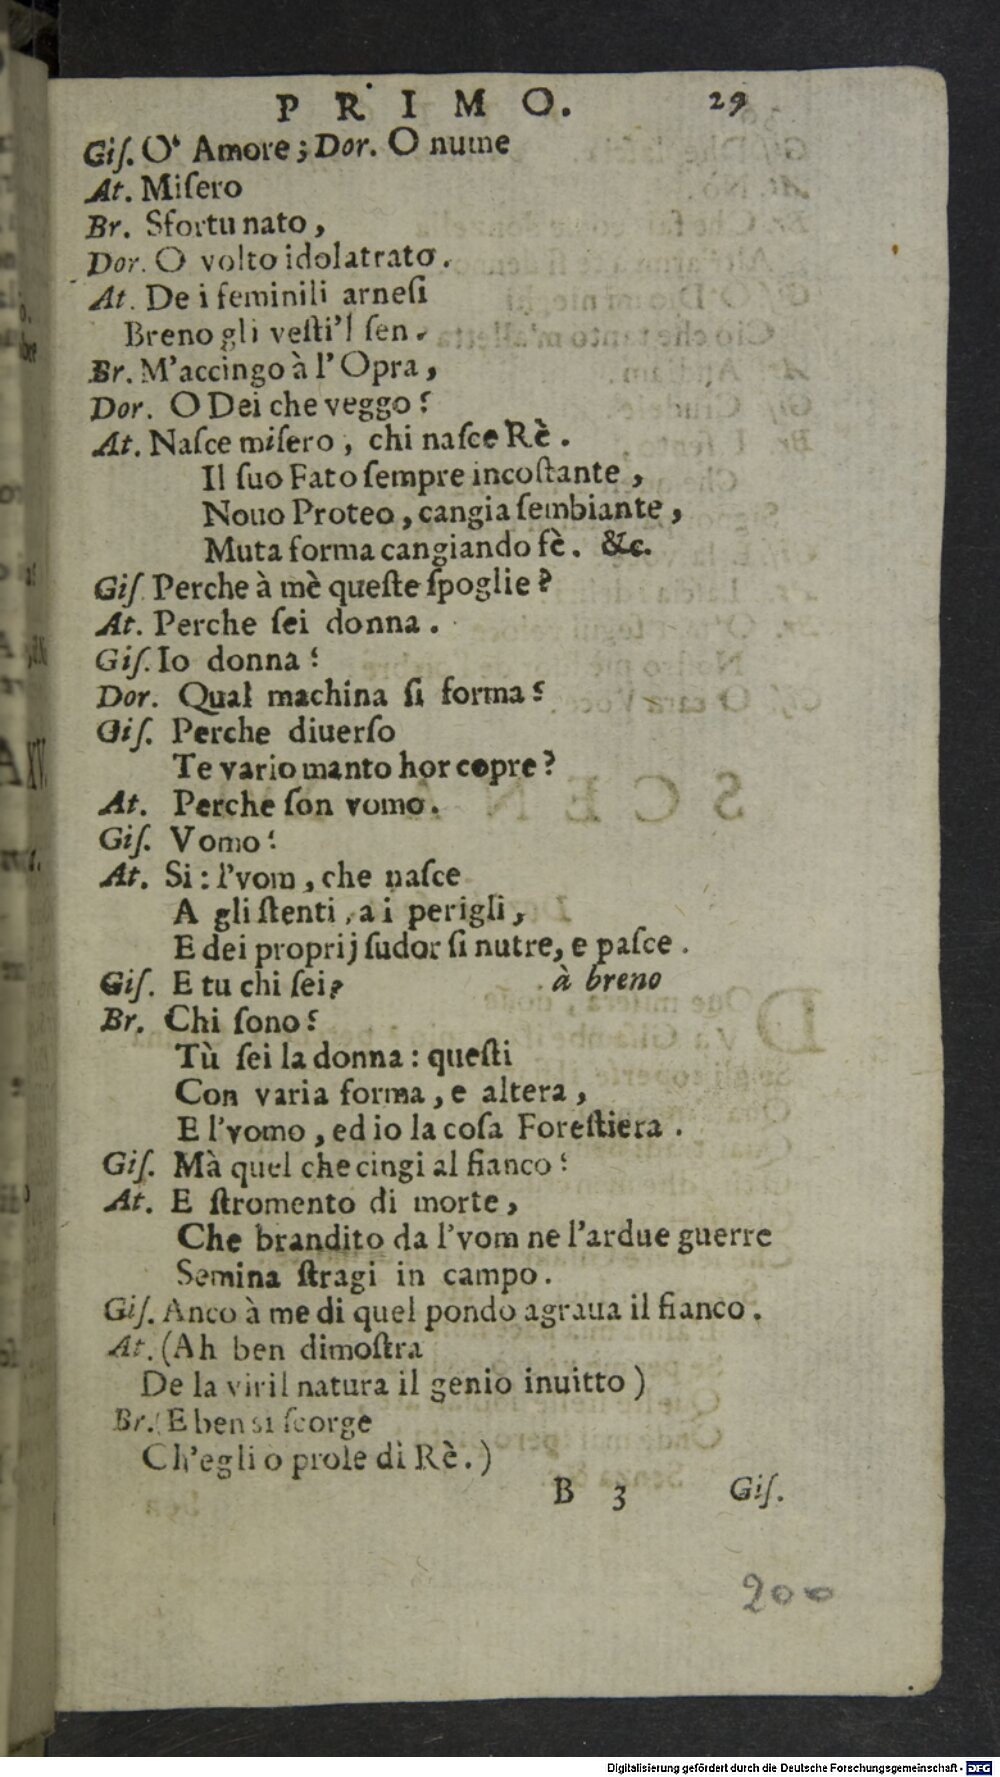 PRIMO. 29
Giſ. O' Amore; Dor. O nume
At. Miſero
Br. Sfortunato,
Dor. O volto idolatrato.
At. De i feminili arneſi
Breno gli veſti'l ſen.
Br. M'accingo à l'Opra,
Dor. O Dei che veggo?
At. Naſce miſero, chi naſce Rè.
Il ſuo Fato ſempre incoſtante,
Nouo Proteo, cangia ſembiante,
Muta forma cangiando fè. &c.
Giſ. Perche à mè queſte ſpoglie?
At. Perche ſei donna.
Giſ. Io donna?
Dor. Qual machina ſi forma?
Giſ. Perche diuerſo
Te vario manto hor copre?
At. Perche ſon vomo.
Giſ. Vomo?
At. Si: l'vom, che naſce
A gli ſtenti, a i perigli,
E dei proprij ſudor ſi nutre, e paſce.
Giſ. E tu chi ſei? à breno
Br. Chi ſono?
Tù ſei la donna: queſti
Con varia forma, e altera,
E l'vomo, ed io la coſa Foreſtiera.
Giſ. Mà quel che cingi al fianco?
At. E ſtromento di morte,
Che brandito da l'vom ne l'ardue guerre
Semina ſtragi in campo.
Giſ. Anco à me di quel pondo agraua il fianco.
At. (Ah ben dimoſtra
De la viril natura il genio inuitto)
Br. (E ben si ſcorge
Ch'egli o prole di Rè.)
B 3 Giſ.
200
Digitalisierung gefördert durch die Deutsche Forschungsgemeinschaft - DFG